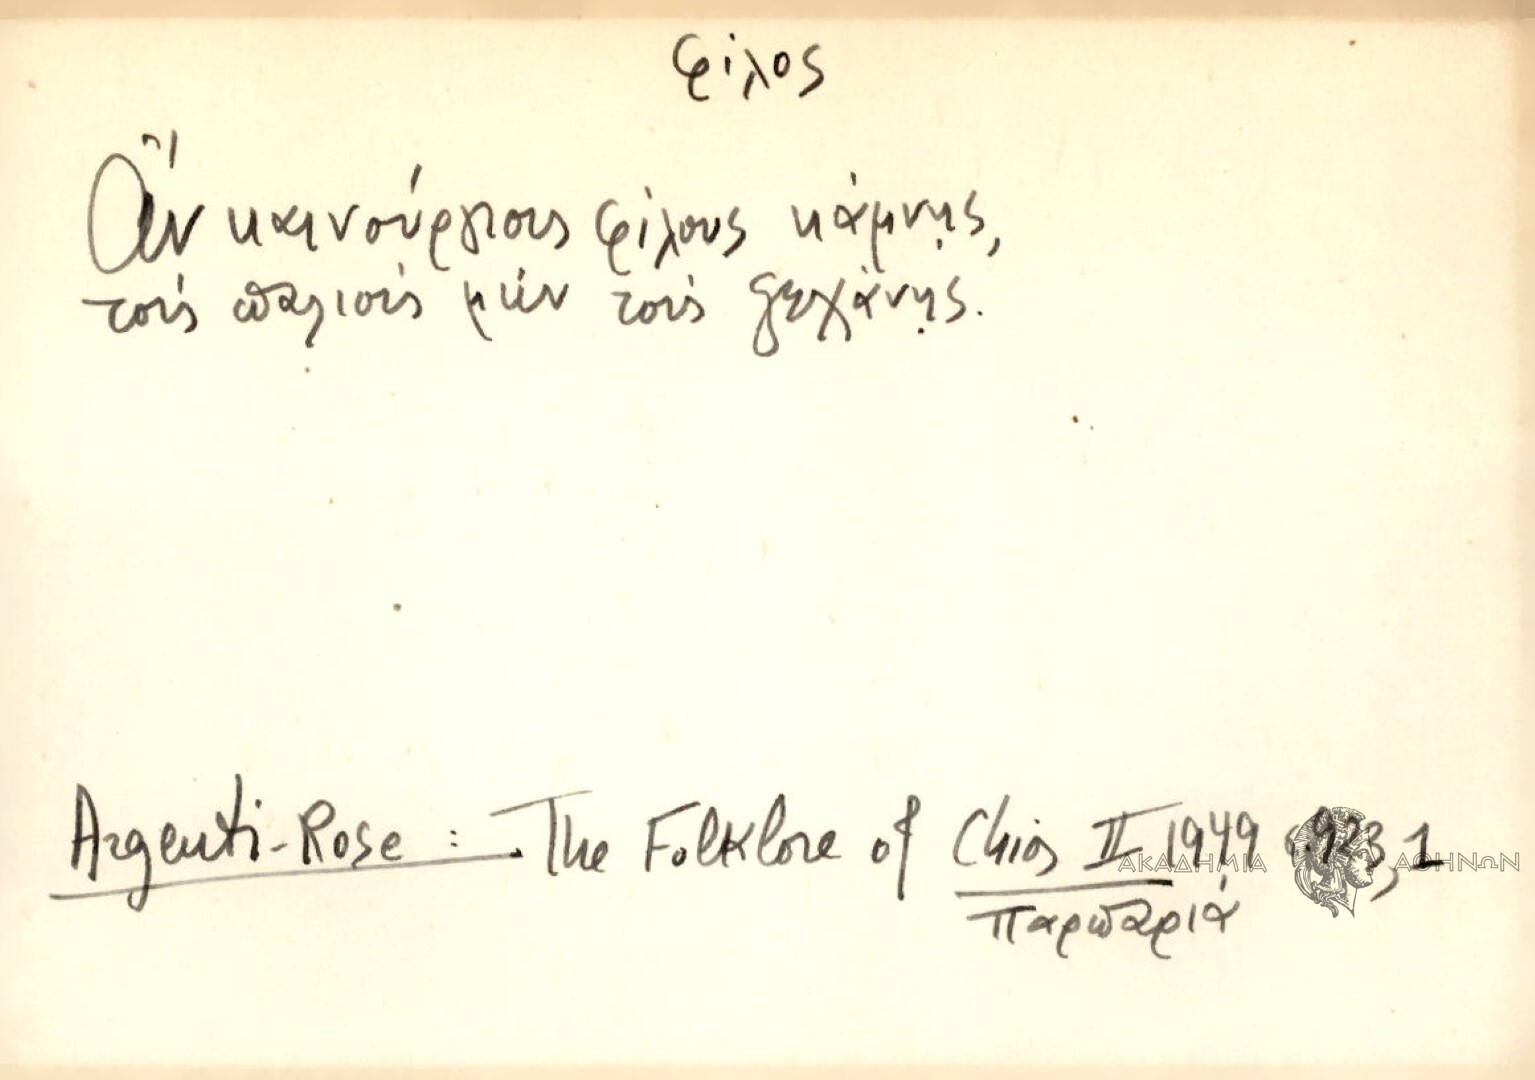 φίλος
Ἂν καινούργιους φίλους κάμνῃς,
τοὺς παλιοὺς μὴν τοὺς ξεχάνῃς.
Argenti-Rose: The Folklore of Chios II 1949 σ. 923,1
ΑΚΑΔΗΜΙΑ ΑΘΗΝΩΝ
Παρπαριά